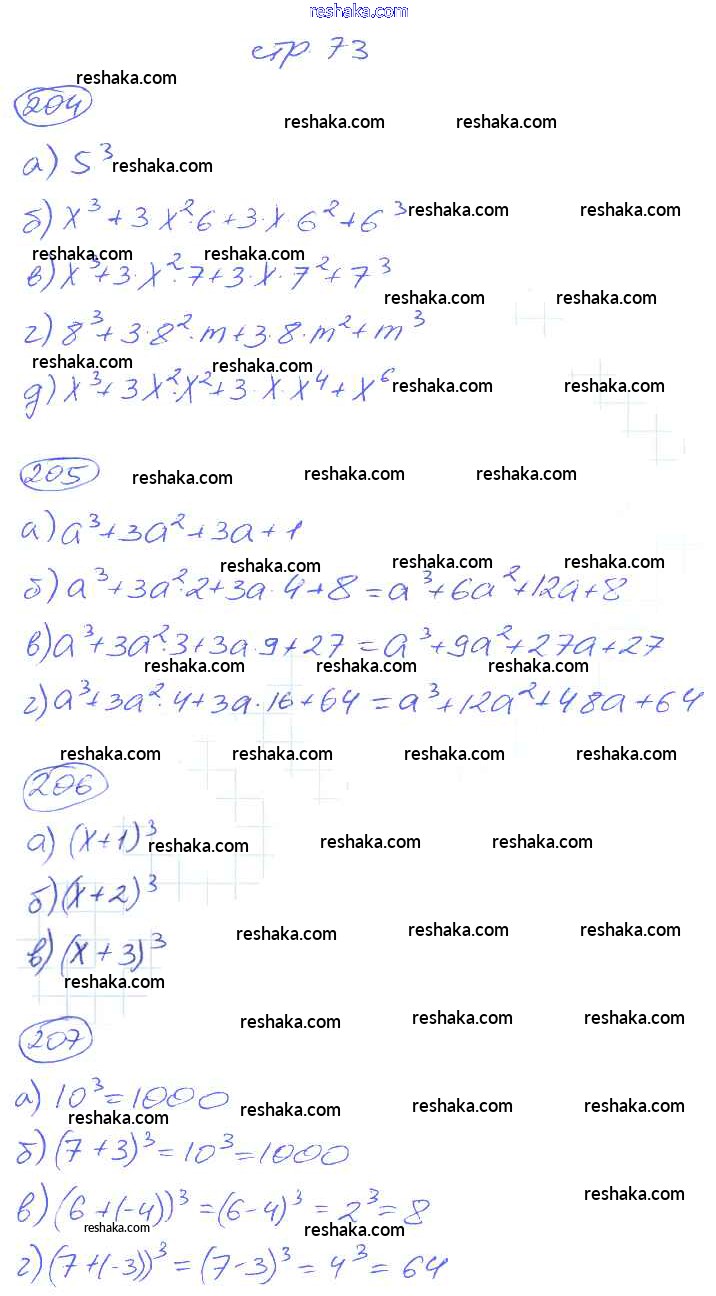 reshaka.com
стр 73
reshaka.com
204
reshaka.com reshaka.com
а) 5³ reshaka.com
б) x³ + 3 x²·6 + 3·x 6² + 6³ reshaka.com reshaka.com
reshaka.com reshaka.com
в) x³ + 3·x²·7 + 3·x·7² + 7³
reshaka.com reshaka.com
г) 8³ + 3·8²·m + 3·8·m² + m³
reshaka.com reshaka.com
д) x³ + 3x²·x² + 3·x·x⁴ + x⁶ reshaka.com reshaka.com
205 reshaka.com reshaka.com reshaka.com
а) a³ + 3a² + 3a + 1
reshaka.com reshaka.com reshaka.com
б) a³ + 3a²·2 + 3a·4 + 8 = a³ + 6a² + 12a + 8
в) a³ + 3a²·3 + 3a·9 + 27 = a³ + 9a² + 27a + 27
reshaka.com reshaka.com reshaka.com
г) a³ + 3a²·4 + 3a·16 + 64 = a³ + 12a² + 48a + 64
reshaka.com reshaka.com reshaka.com reshaka.com
206
а) (x + 1)³ reshaka.com reshaka.com reshaka.com
б) (x + 2)³
reshaka.com reshaka.com reshaka.com
в) (x + 3)³
reshaka.com
207 reshaka.com reshaka.com reshaka.com
а) 10³ = 1000
reshaka.com reshaka.com reshaka.com reshaka.com
б) (7 + 3)³ = 10³ = 1000
reshaka.com
в) (6 + (-4))³ = (6 - 4)³ = 2³ = 8
reshaka.com reshaka.com
г) (7 + (-3))³ = (7 - 3)³ = 4³ = 64